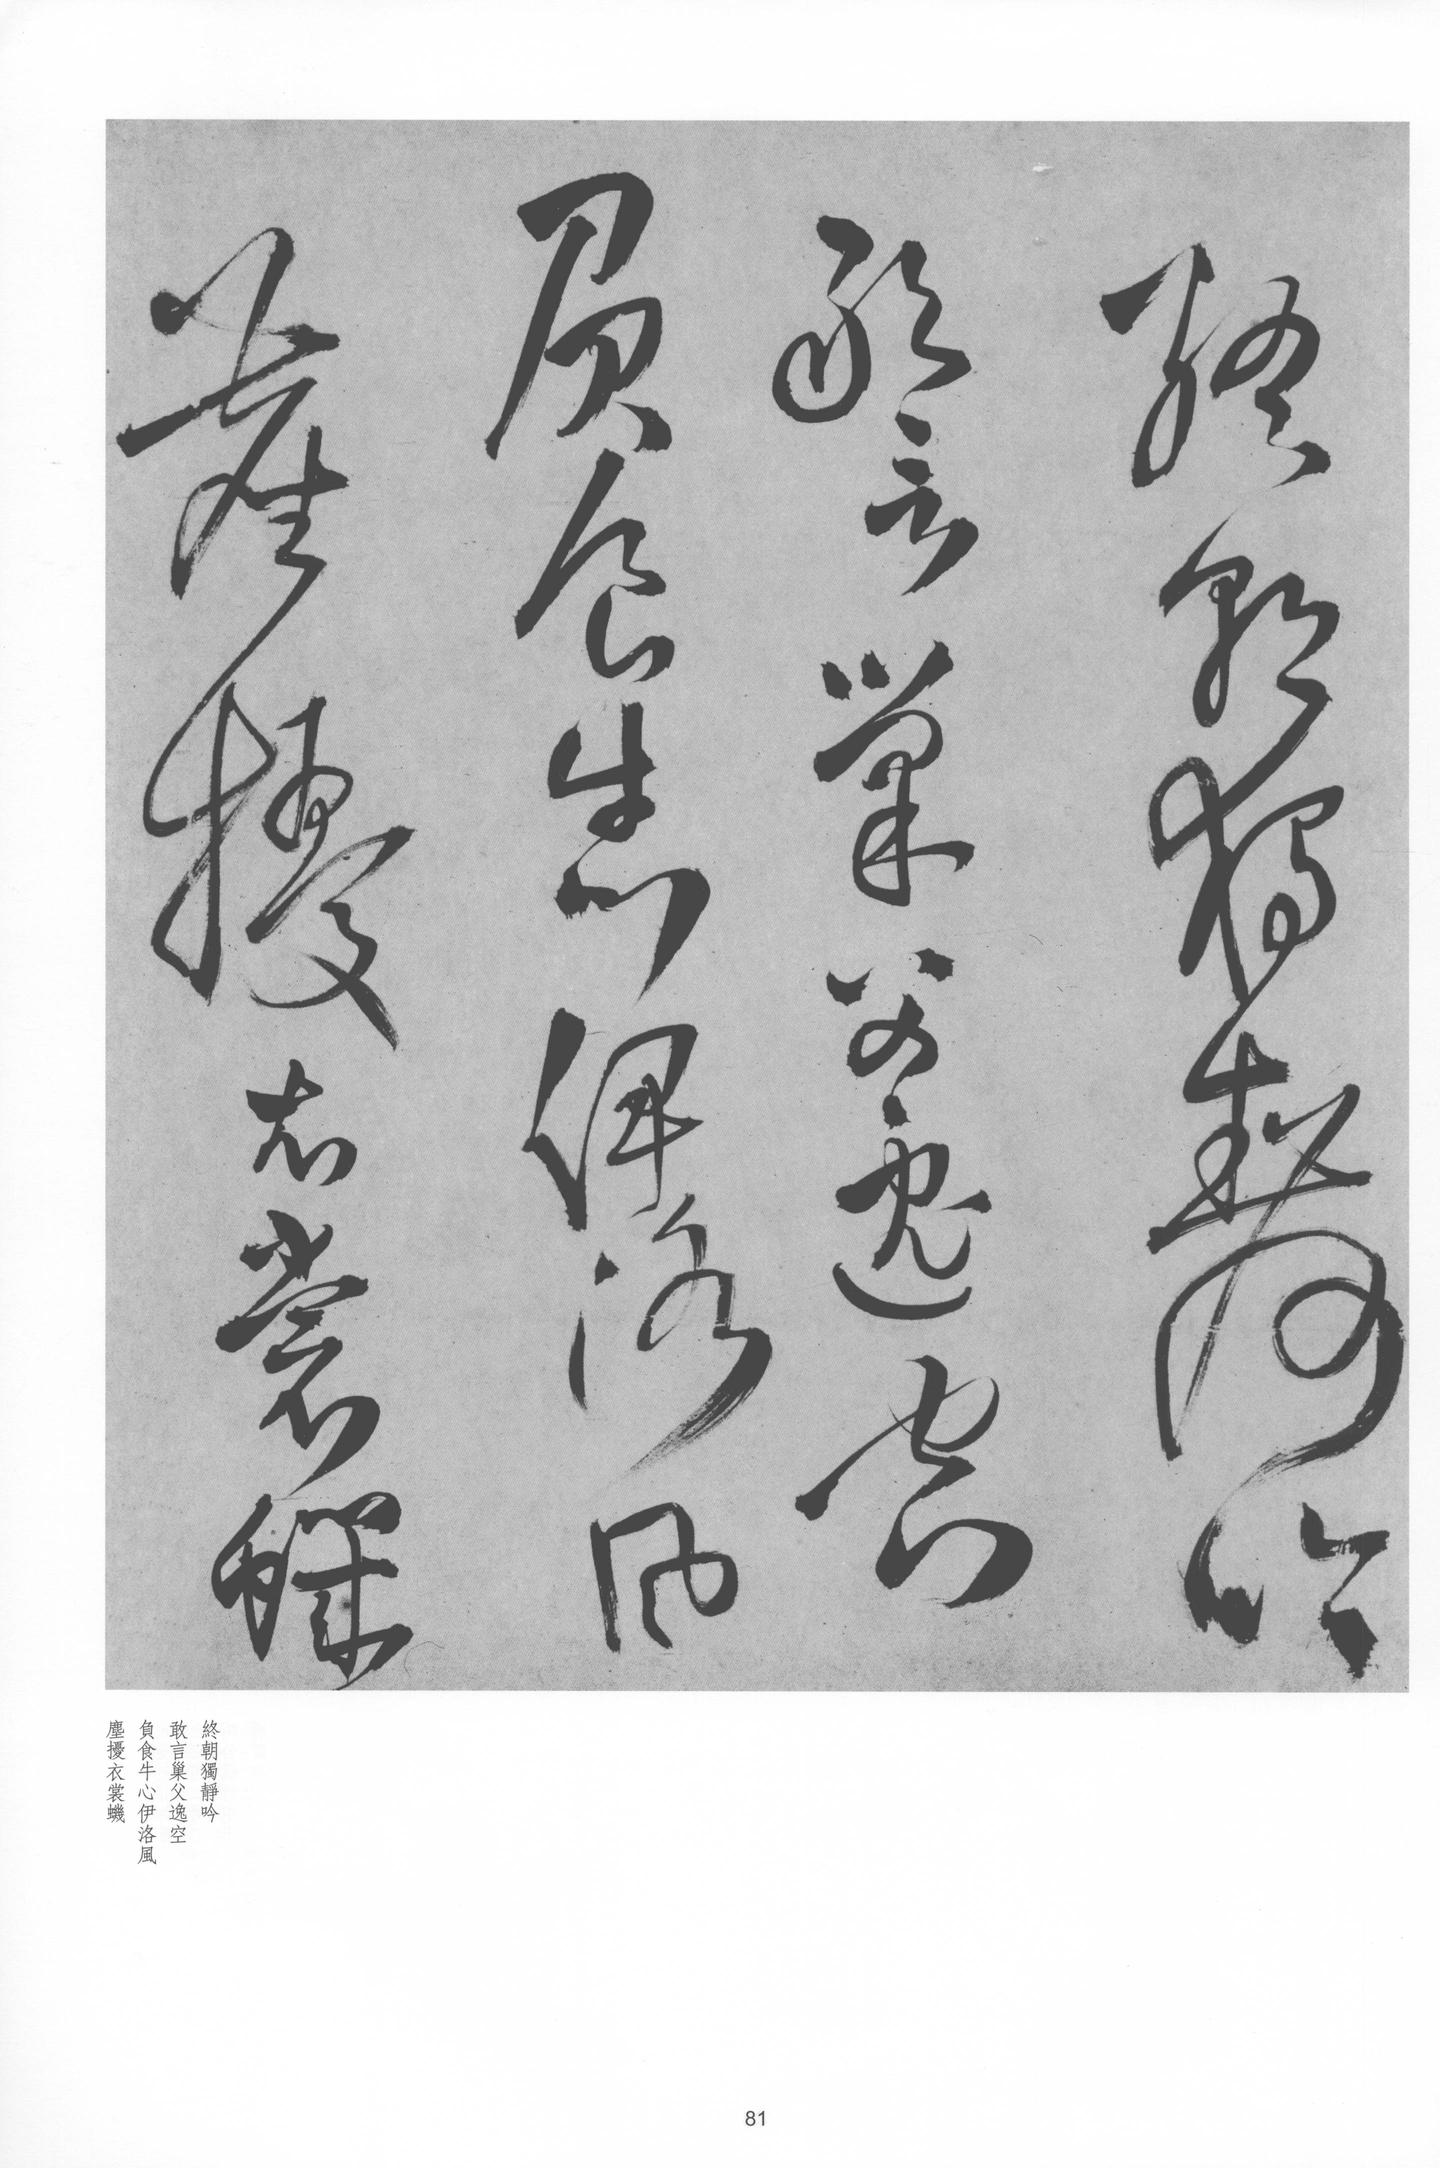 終朝獨靜吟
敢言巢父逸空
負食牛心伊洛風
塵擾衣裳蟣
終朝獨靜吟
敢言巢父逸空
負食牛心伊洛風
塵擾衣裳蟣
81